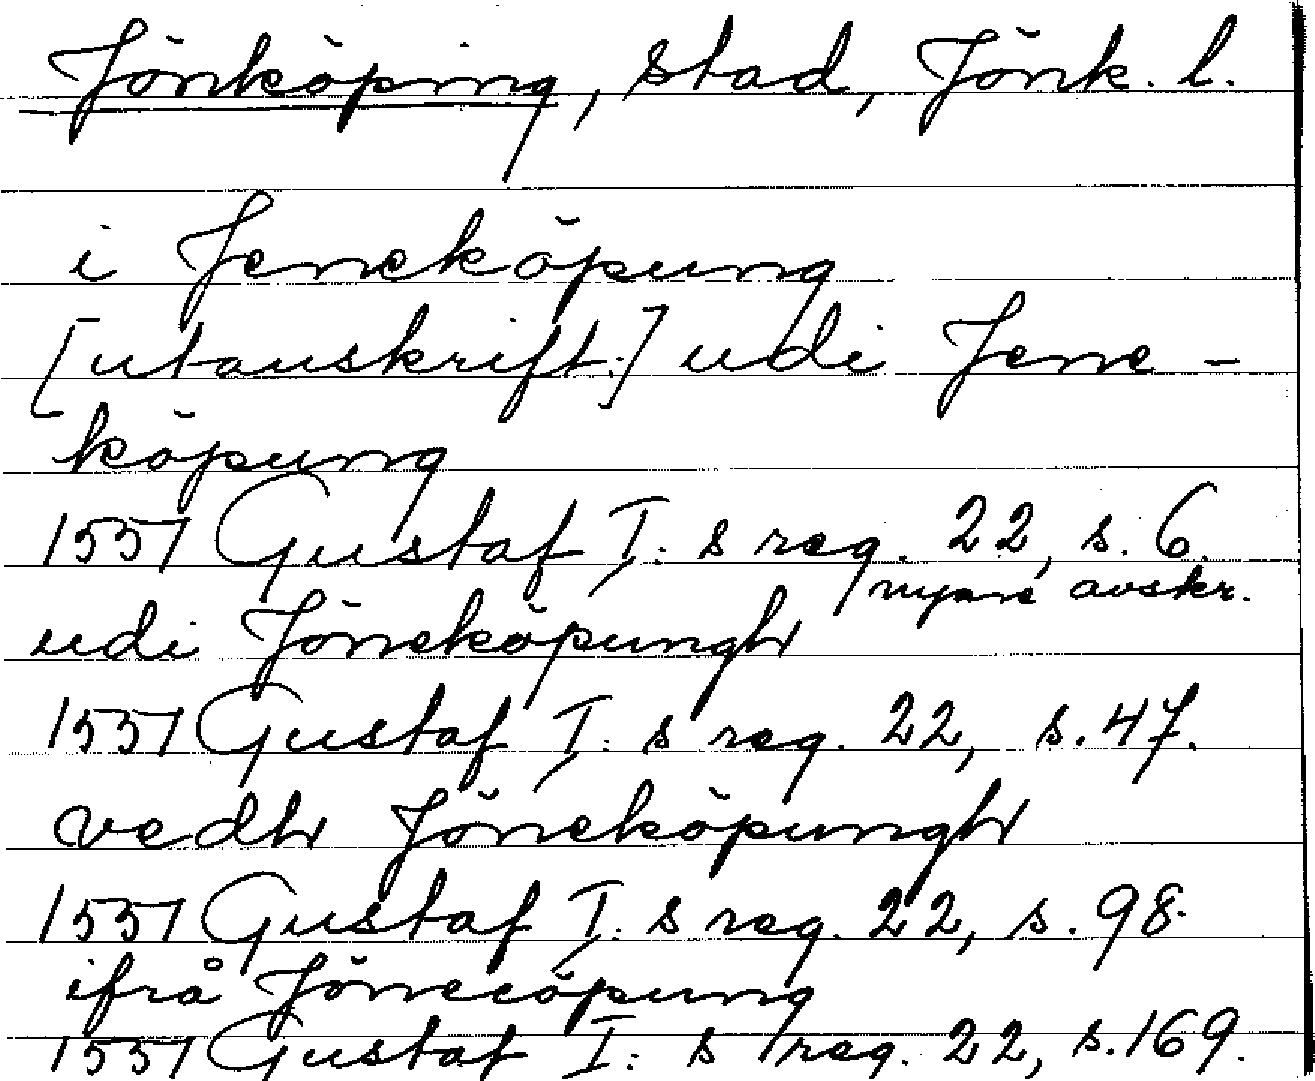 Jönköping, stad, Jönk. l.
i Jeneköpung
[utanskrift:] udi Jene-
köpung
1551 Gustaf I:s reg. 22, s. 6.
nyare avskr.
udi Jöneköpungh
1551 Gustaf I:s reg. 22, s. 47.
vedh Jöneköpungh
1551 Gustaf I:s reg. 22, s. 98.
ifrå Jönecöpung
1551 Gustaf I:s reg. 22, s. 169.